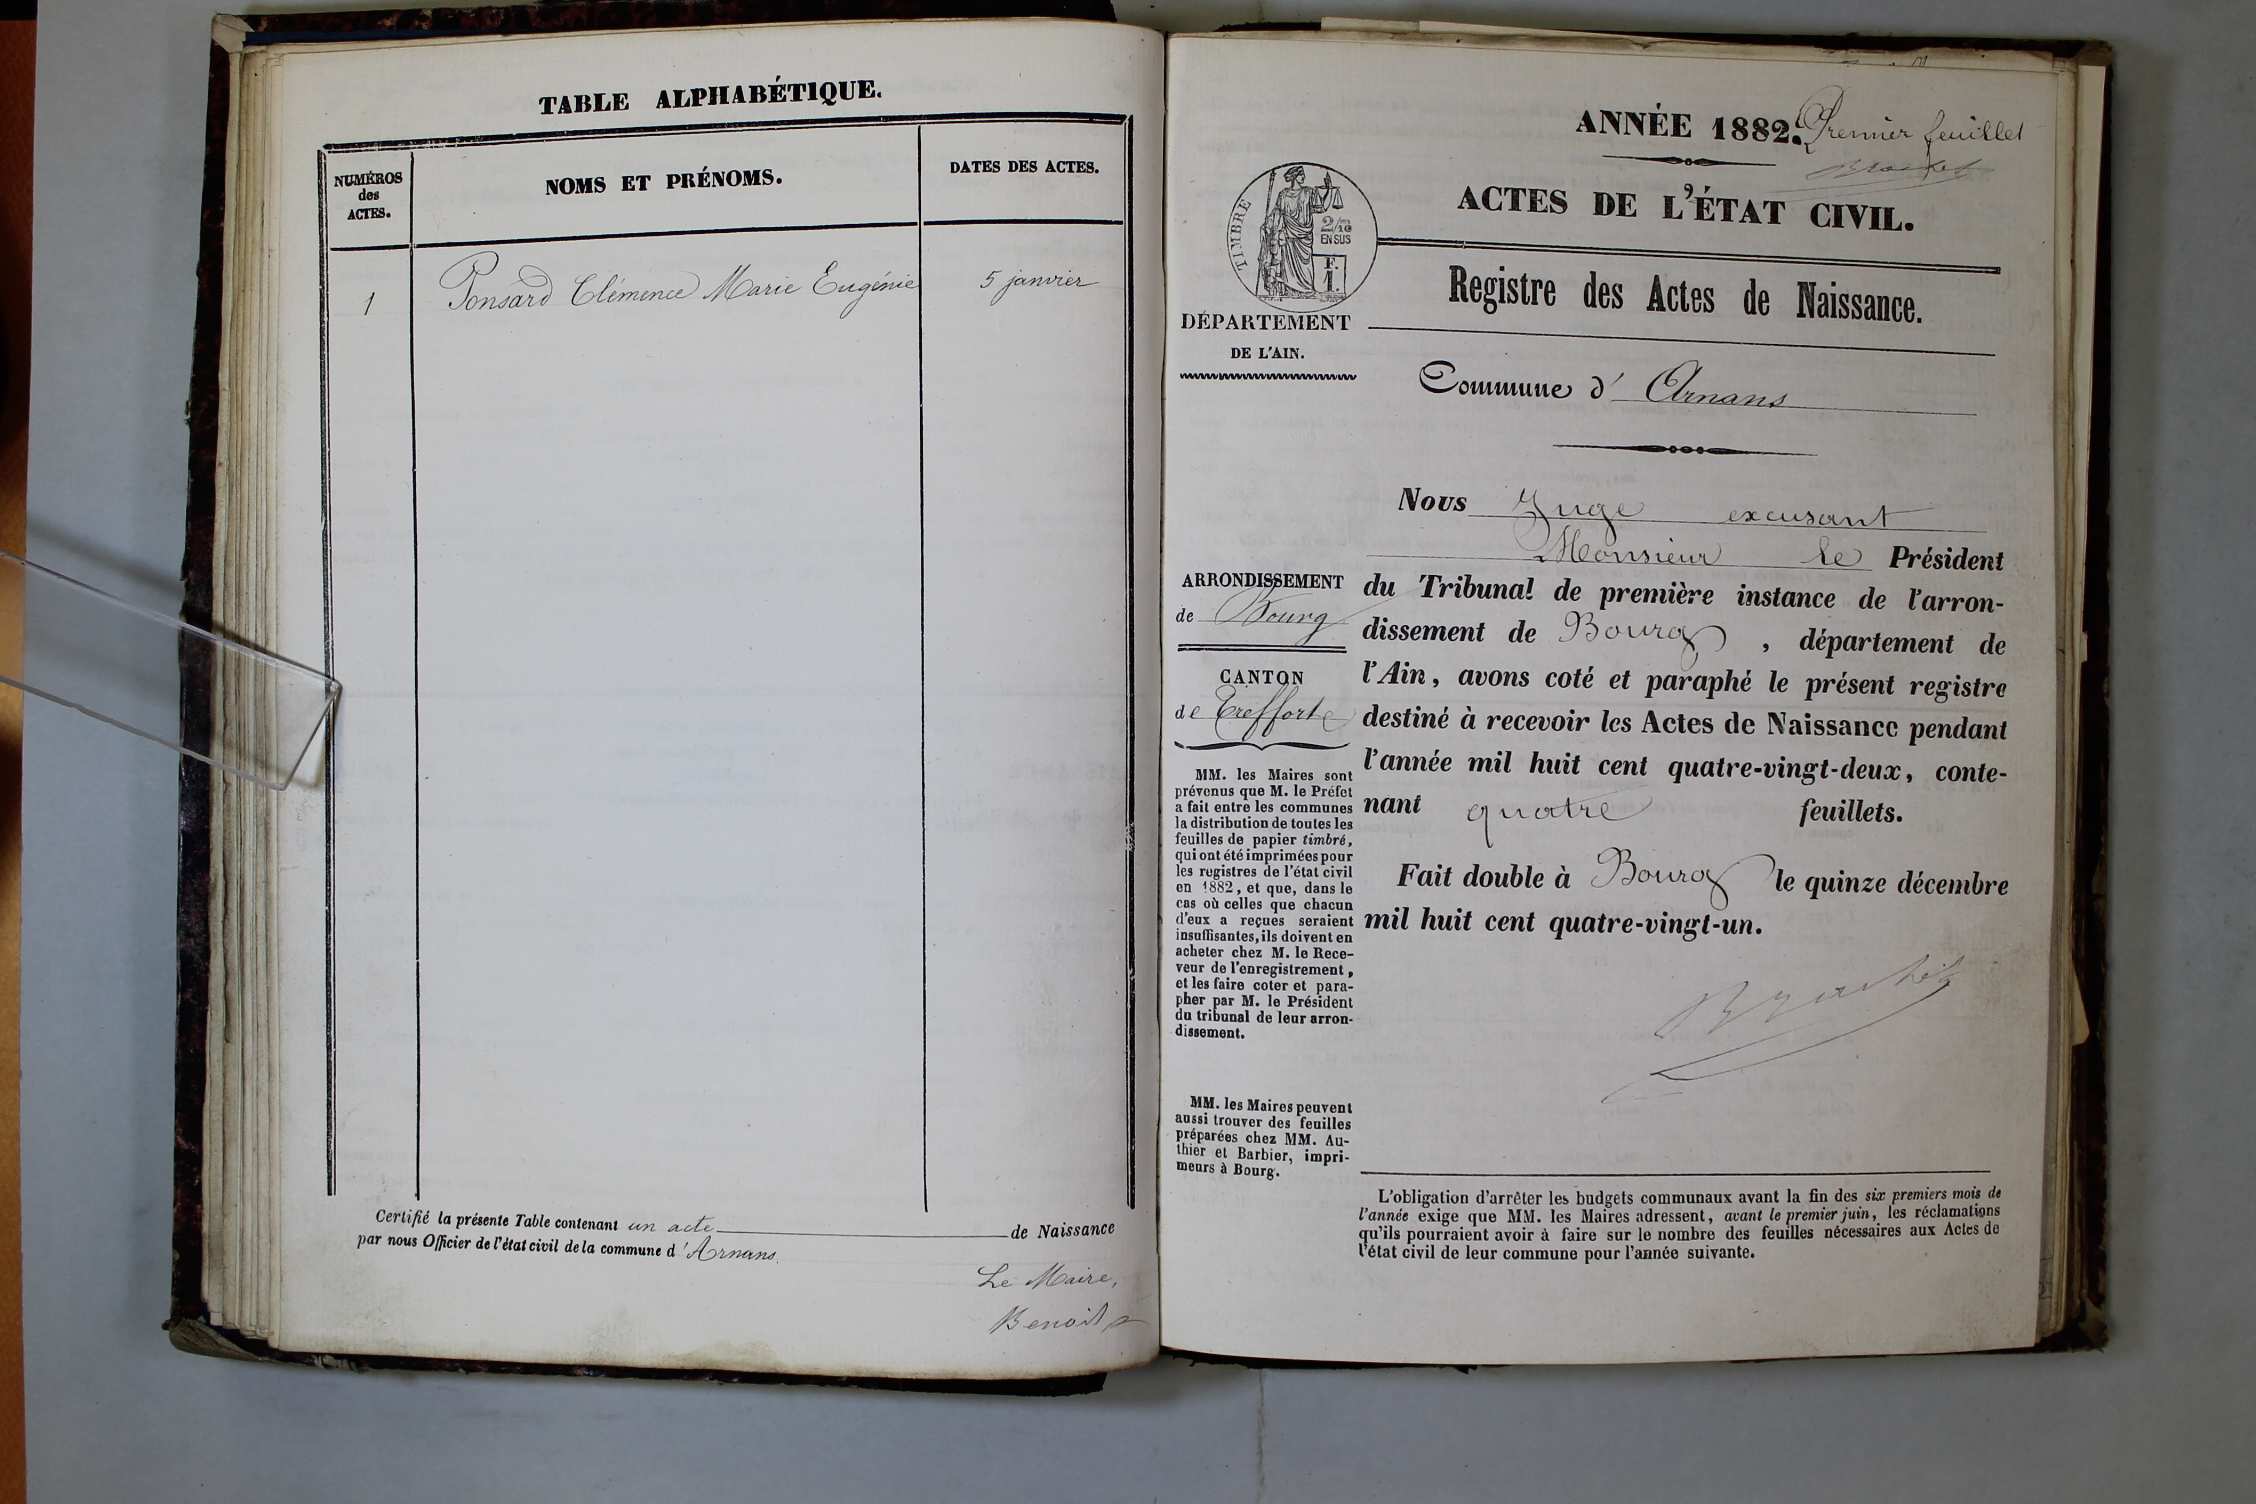 TABLE ALPHABÉTIQUE.
NUMÉROS
des
ACTES.
NOMS ET PRÉNOMS.
DATES DES ACTES.
1 Ponsard Clémence Marie Eugénie 5 janvier
Certifié la présente Table contenant un acte de Naissance
par nous Officier de l'état civil de la commune d'Arnans.
Le Maire,
Benoit
ANNÉE 1882.
Premier feuillet
ACTES DE L'ÉTAT CIVIL.
TIMBRE
2/10
EN SUS
F.
1.
Registre des Actes de Naissance.
DÉPARTEMENT
DE L'AIN.
Commune d' Arnans
Nous Juge excusant
Monsieur le Président
du Tribunal de première instance de l'arron-
dissement de Bourg, département de
l'Ain, avons coté et paraphé le présent registre
destiné à recevoir les Actes de Naissance pendant
l'année mil huit cent quatre-vingt-deux, conte-
nant quatre feuillets.
Fait double à Bourg le quinze décembre
mil huit cent quatre-vingt-un.
ARRONDISSEMENT
de Bourg
CANTON
de Treffort
MM. les Maires sont
prévenus que M. le Préfet
a fait entre les communes
la distribution de toutes les
feuilles de papier timbré,
qui ont été imprimées pour
les registres de l'état civil
en 1882, et que, dans le
cas où celles que chacun
d'eux a reçues seraient
insuffisantes, ils doivent en
acheter chez M. le Rece-
veur de l'enregistrement,
et les faire coter et para-
pher par M. le Président
du tribunal de leur arron-
dissement.
MM. les Maires peuvent
aussi trouver des feuilles
préparées chez MM. Au-
thier et Barbier, impri-
meurs à Bourg.
L'obligation d'arrêter les budgets communaux avant la fin des six premiers mois de
l'année exige que MM. les Maires adressent, avant le premier juin, les réclamations
qu'ils pourraient avoir à faire sur le nombre des feuilles nécessaires aux Actes de
l'état civil de leur commune pour l'année suivante.